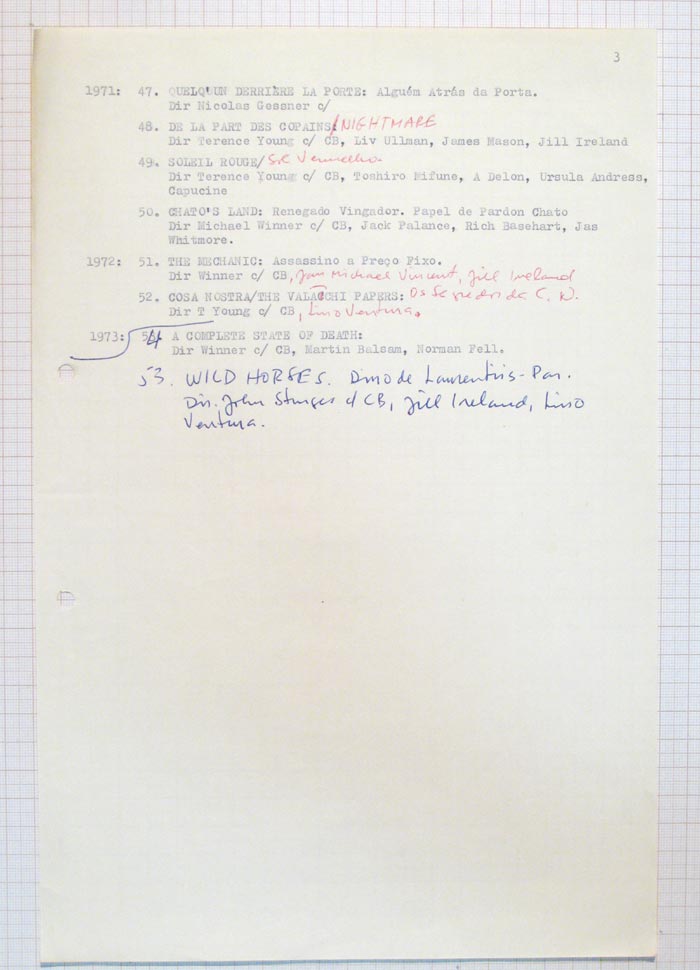 3
1971: 47. QUELQ'UN DERRIÈRE LA PORTE: Alguém Atrás da Porta.
Dir Nicolas Gessner c/
48. DE LA PART DES COPAINS/NIGHTMARE
Dir Terence Young c/ CB, Liv Ullman, James Mason, Jill Ireland
49. SOLEIL ROUGE/Sol Vermelho
Dir Terence Young c/ CB, Toshiro Mifune, A Delon, Ursula Andress,
Capucine
50. CHATO'S LAND: Renegado Vingador. Papel de Pardon Chato
Dir Michael Winner c/ CB, Jack Palance, Rich Basehart, Jas
Whitmore.
1972: 51. THE MECHANIC: Assassino a Preço Fixo.
Dir Winner c/ CB, Jan Michael Vincent, Jill Ireland
52. COSA NOSTRA/THE VALACCHI PAPERS: Os Segredos da C. N.
Dir T Young c/ CB, Lino Ventura.
1973: 54 A COMPLETE STATE OF DEATH:
Dir Winner c/ CB, Martin Balsam, Norman Fell.
53. WILD HORSES. Dino de Laurentiis-Par.
Dir. John Sturges c/ CB, Jill Ireland, Lino
Ventura.